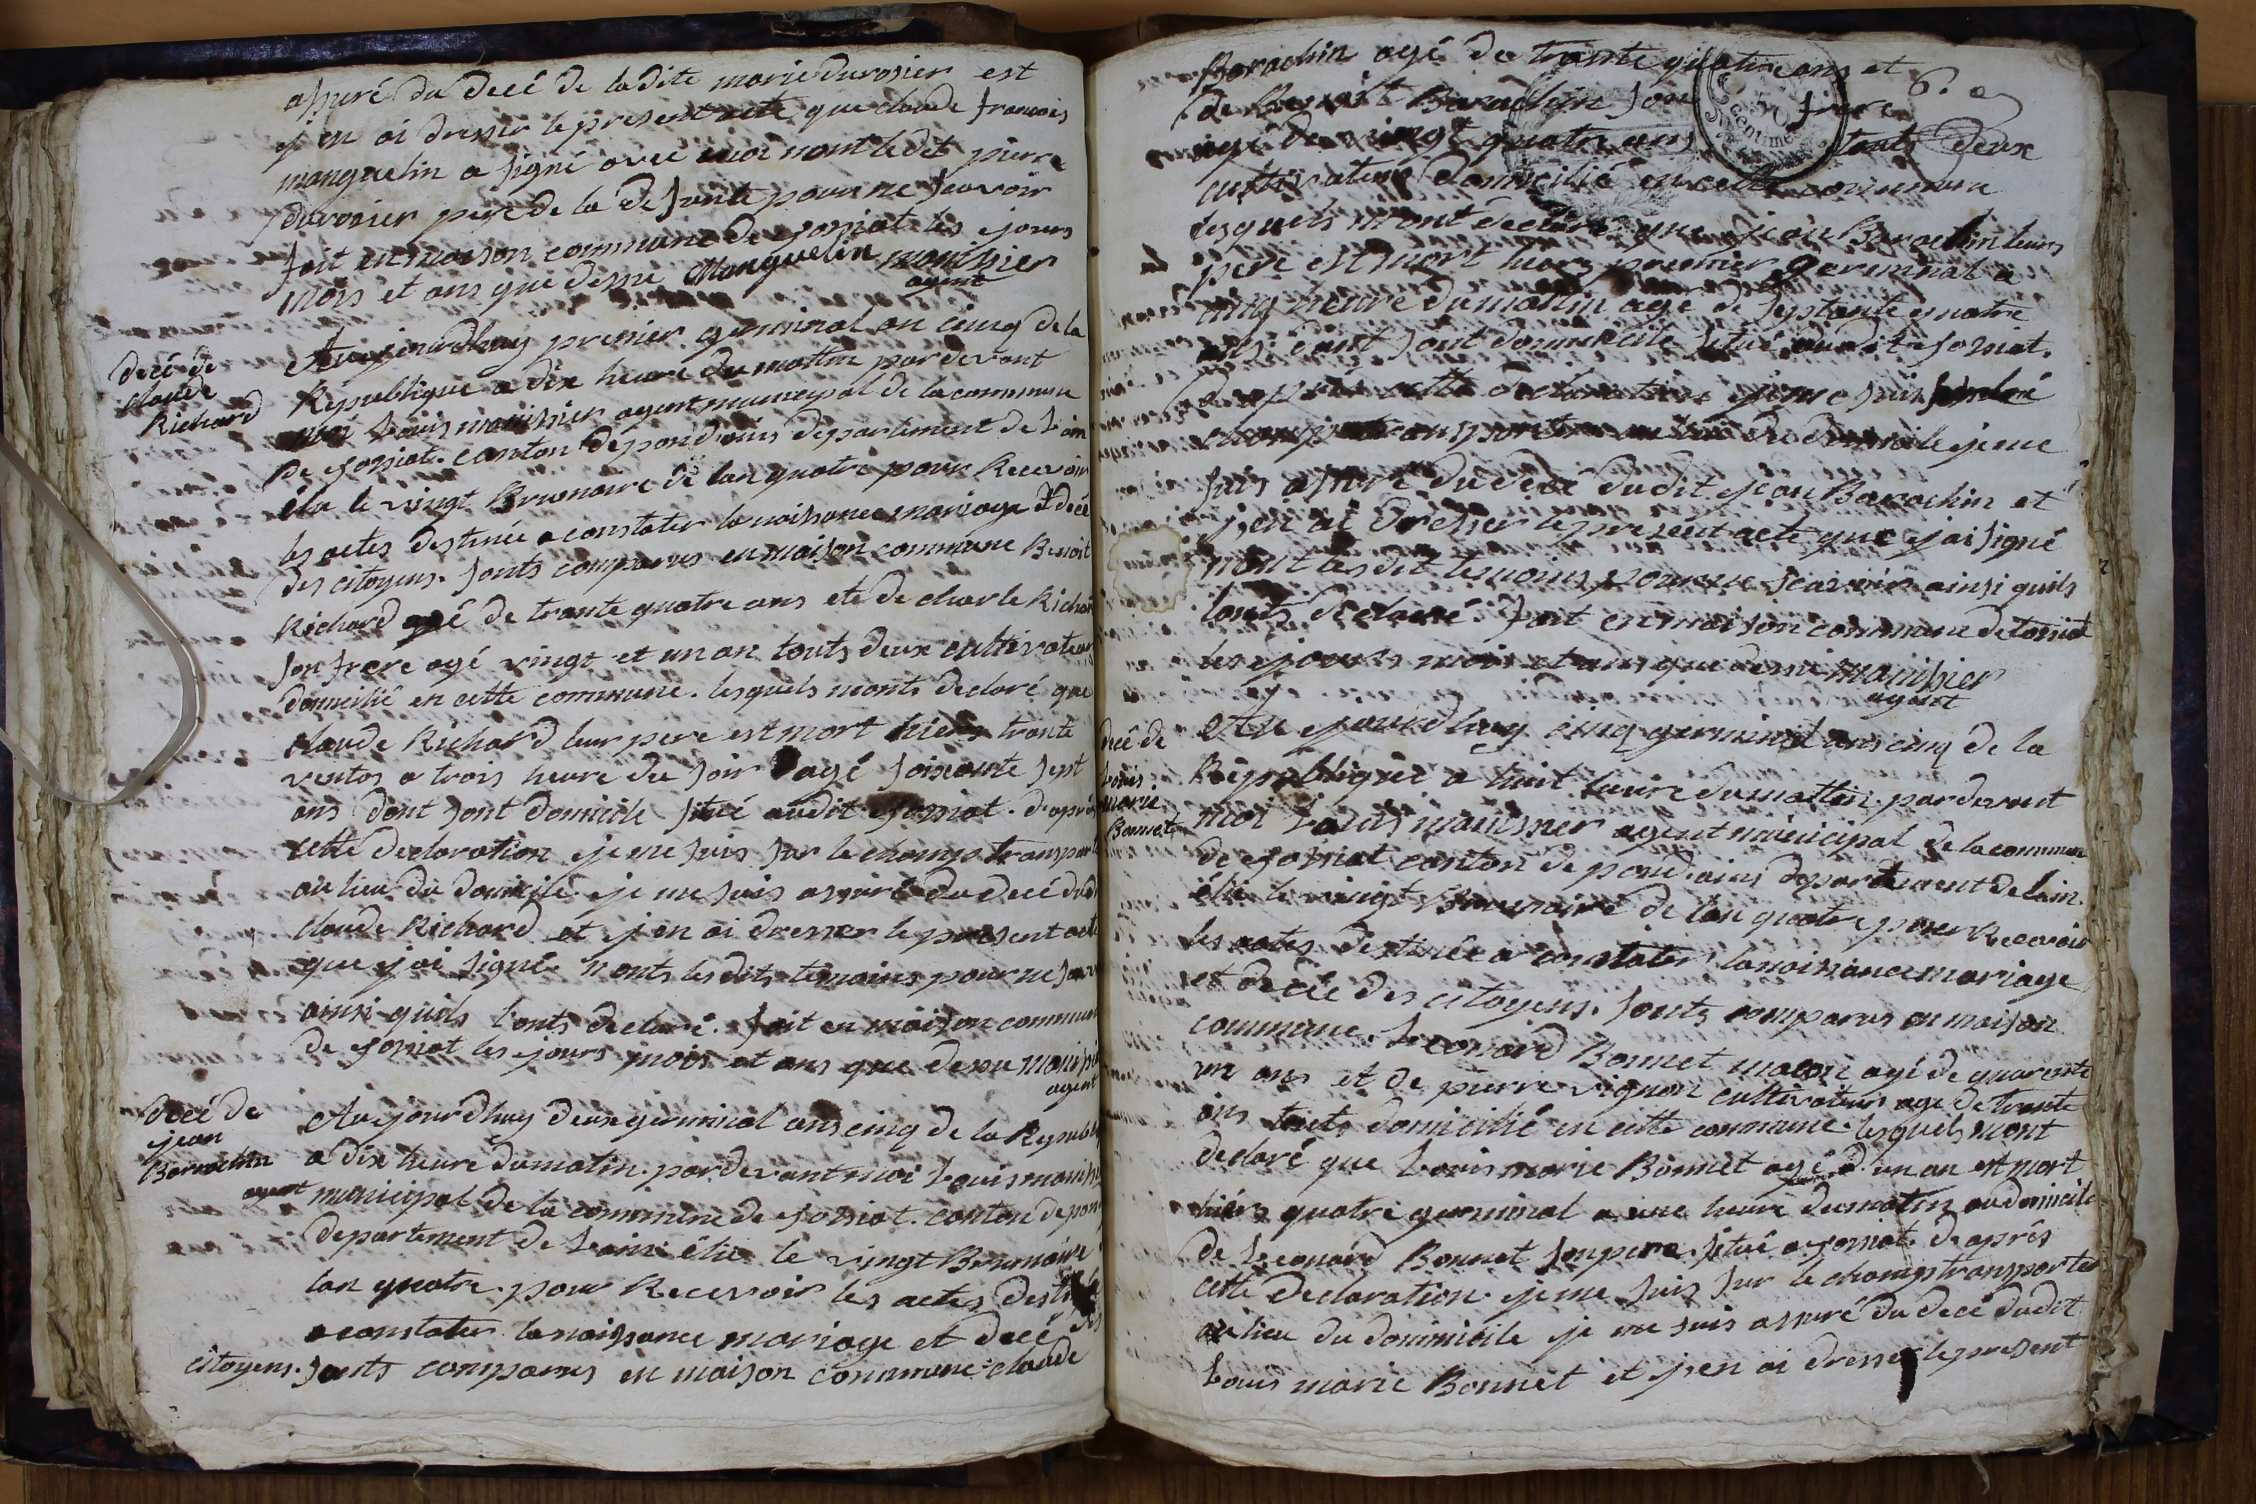 assuré du decé de ladite marie durosier est
j'en ai dresser le present acte que claude francois
manguelin a signé avec moi nont ledit pierre
durosier pere de la defunte pour ne scavoir
fait en maison commune de jossiat les jours
mois et ans que dessu Manguelin monthier
agent
decé de
claude
Richard
Au jourdhuy premier germinal an cinq de la
République a dix heure du mattin par devant
moi Louis monthier agent municipal de la commune
de jossiat. canton de pondains departement de Lain
élu le vingt Brumaire de lan quatre pour Recevoir
les actes destinée a constater la naissance mariage & decé
des citoyens. sonts comparus en maison commune Benoit
Richard agé de trante quatre ans et de charle Richar
son frere agé vingt et un an touts deux cultivateur
domicilié en cette commune. lesquels monts declaré que
claude Richard leur pere est mort hiers trante
ventos a trois heure du soir agé soixante sept
ans dont sont domicile situé audit jossiat. d'aprés
cette declaration je me suis sur le champs transporte
au lieu du domicile je me suis assuré du decé dudi
claude Richard et j'en ai dresser le present acte
que j'ai signé nonts lesdits temoins pour ne scav
ainsi quils l'onts declaré. fait en maison commune
de jossiat les jours mois et ans que dessu monthie
agent
decé de
jean
Barrachin
Au jourdhuy deux germinal ans cinq de la Republi
a dix heure du matin. par devant moi Louis monthi
agent municipal de la commune de jossiat. canton de pon
departement de Lain élu le vingt Brumaire
lan quatre. pour Recevoir les actes desti
a constater la naissance mariage et decé des
citoyens. sonts comparus en maison commune claude
6.
Barachin agé de trante quatre ans et
de Benoit Barachin son frere
agé de vingt quatre ans touts deux
cultivateur domicilié en cette commune
lesquels m'ont declaré que jean Barachin leurs
pere est mort hiers premier germinal a
cinq heure du mattin agé de septante quatre
ans dont sont domicile situé audit jossiat.
d'aprés cette declaration je me suis
transporter au lieu du domicile je me
suis assuré du decé dudit jean Barachin et
j'en ai dresser le present acte que j'ai signé
nont lesdit temoins pour ne scavoir ainsi quils
lonts declaré. fait en maison commune de jossiat
les jours mois et ans que dessu monthier
agent
decé de
Louis
marie
Bonnet
Au jourdhuy cinq germinal ans cinq de la
République a huit heure du mattin. par devant
moi Louis monthier agent municipal de la commune
de jossiat canton de pondains departement de lain.
élu le vingt Brumaire de lan quatre pour Recevoir
les actes destinée a constater la naissance mariage
et decée des citoyens. sonts comparus en maison
commune. Leonard Bonnet macon agé de quarente
un ans et de pierre vignon cultivateur agé de trante
ans touts domicilié en cette commune. lesquels mont
declaré que Louis marie Bonnet agé d'un an est mort
hiers quatre germinal a une heure du matin au domicile
de Leonard Bonnet son pere situé a jossiat. d'aprés
cette declaration. je me suis sur le champs transporter
au lieu du dommicile je me suis assuré du decé dudit
Louis marie Bonnet et j'en ai dresser le present